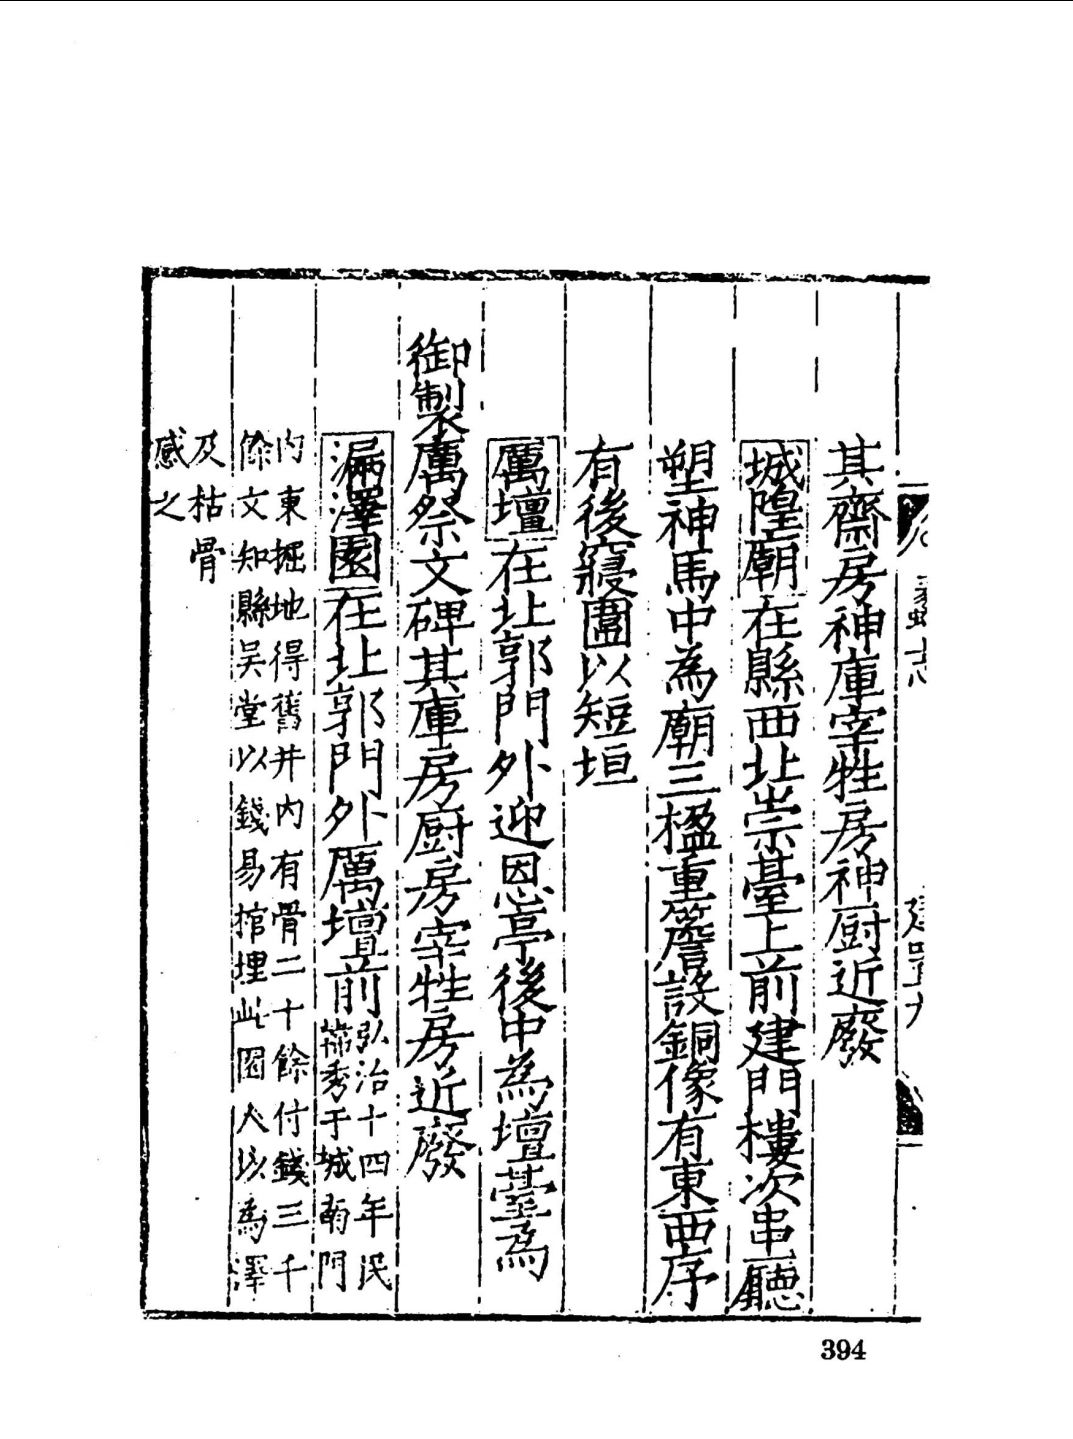 其齋房神庫宰牲房神厨近廢
城隍廟在縣西北崇臺上前建門樓次串廳
塑神馬中為廟三楹重簷設銅像有東西序
有後寢圍以短垣
厲壇在北郭門外迎恩亭後中為壇臺為
御製厲祭文碑其庫房厨房宰牲房近廢
漏澤園在北郭門外厲壇前弘治十四年民
常秀于城南門
内東掘地得舊井内有骨二十餘付錢三千
餘文知縣吴堂以錢易棺埋此園人以為澤
及枯骨
感之
394